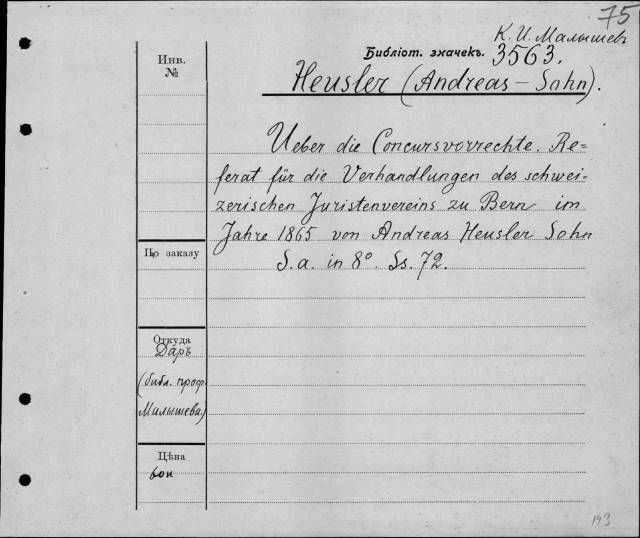 75
К. И. Малышев
Библіот. значекъ. 3563.
Heusler (Andreas – Sohn).
Инв.
№
Ueber die Concursvorrechte. Re=
ferat für die Verhandlungen des schwei=
zerischen Juristenvereins zu Bern im
Jahre 1865 von Andreas Heusler Sohn
S. a. in 8°. Ss. 72.
По заказу
Откуда
Даръ
(библ. проф.
Малышева)
Цѣна
143